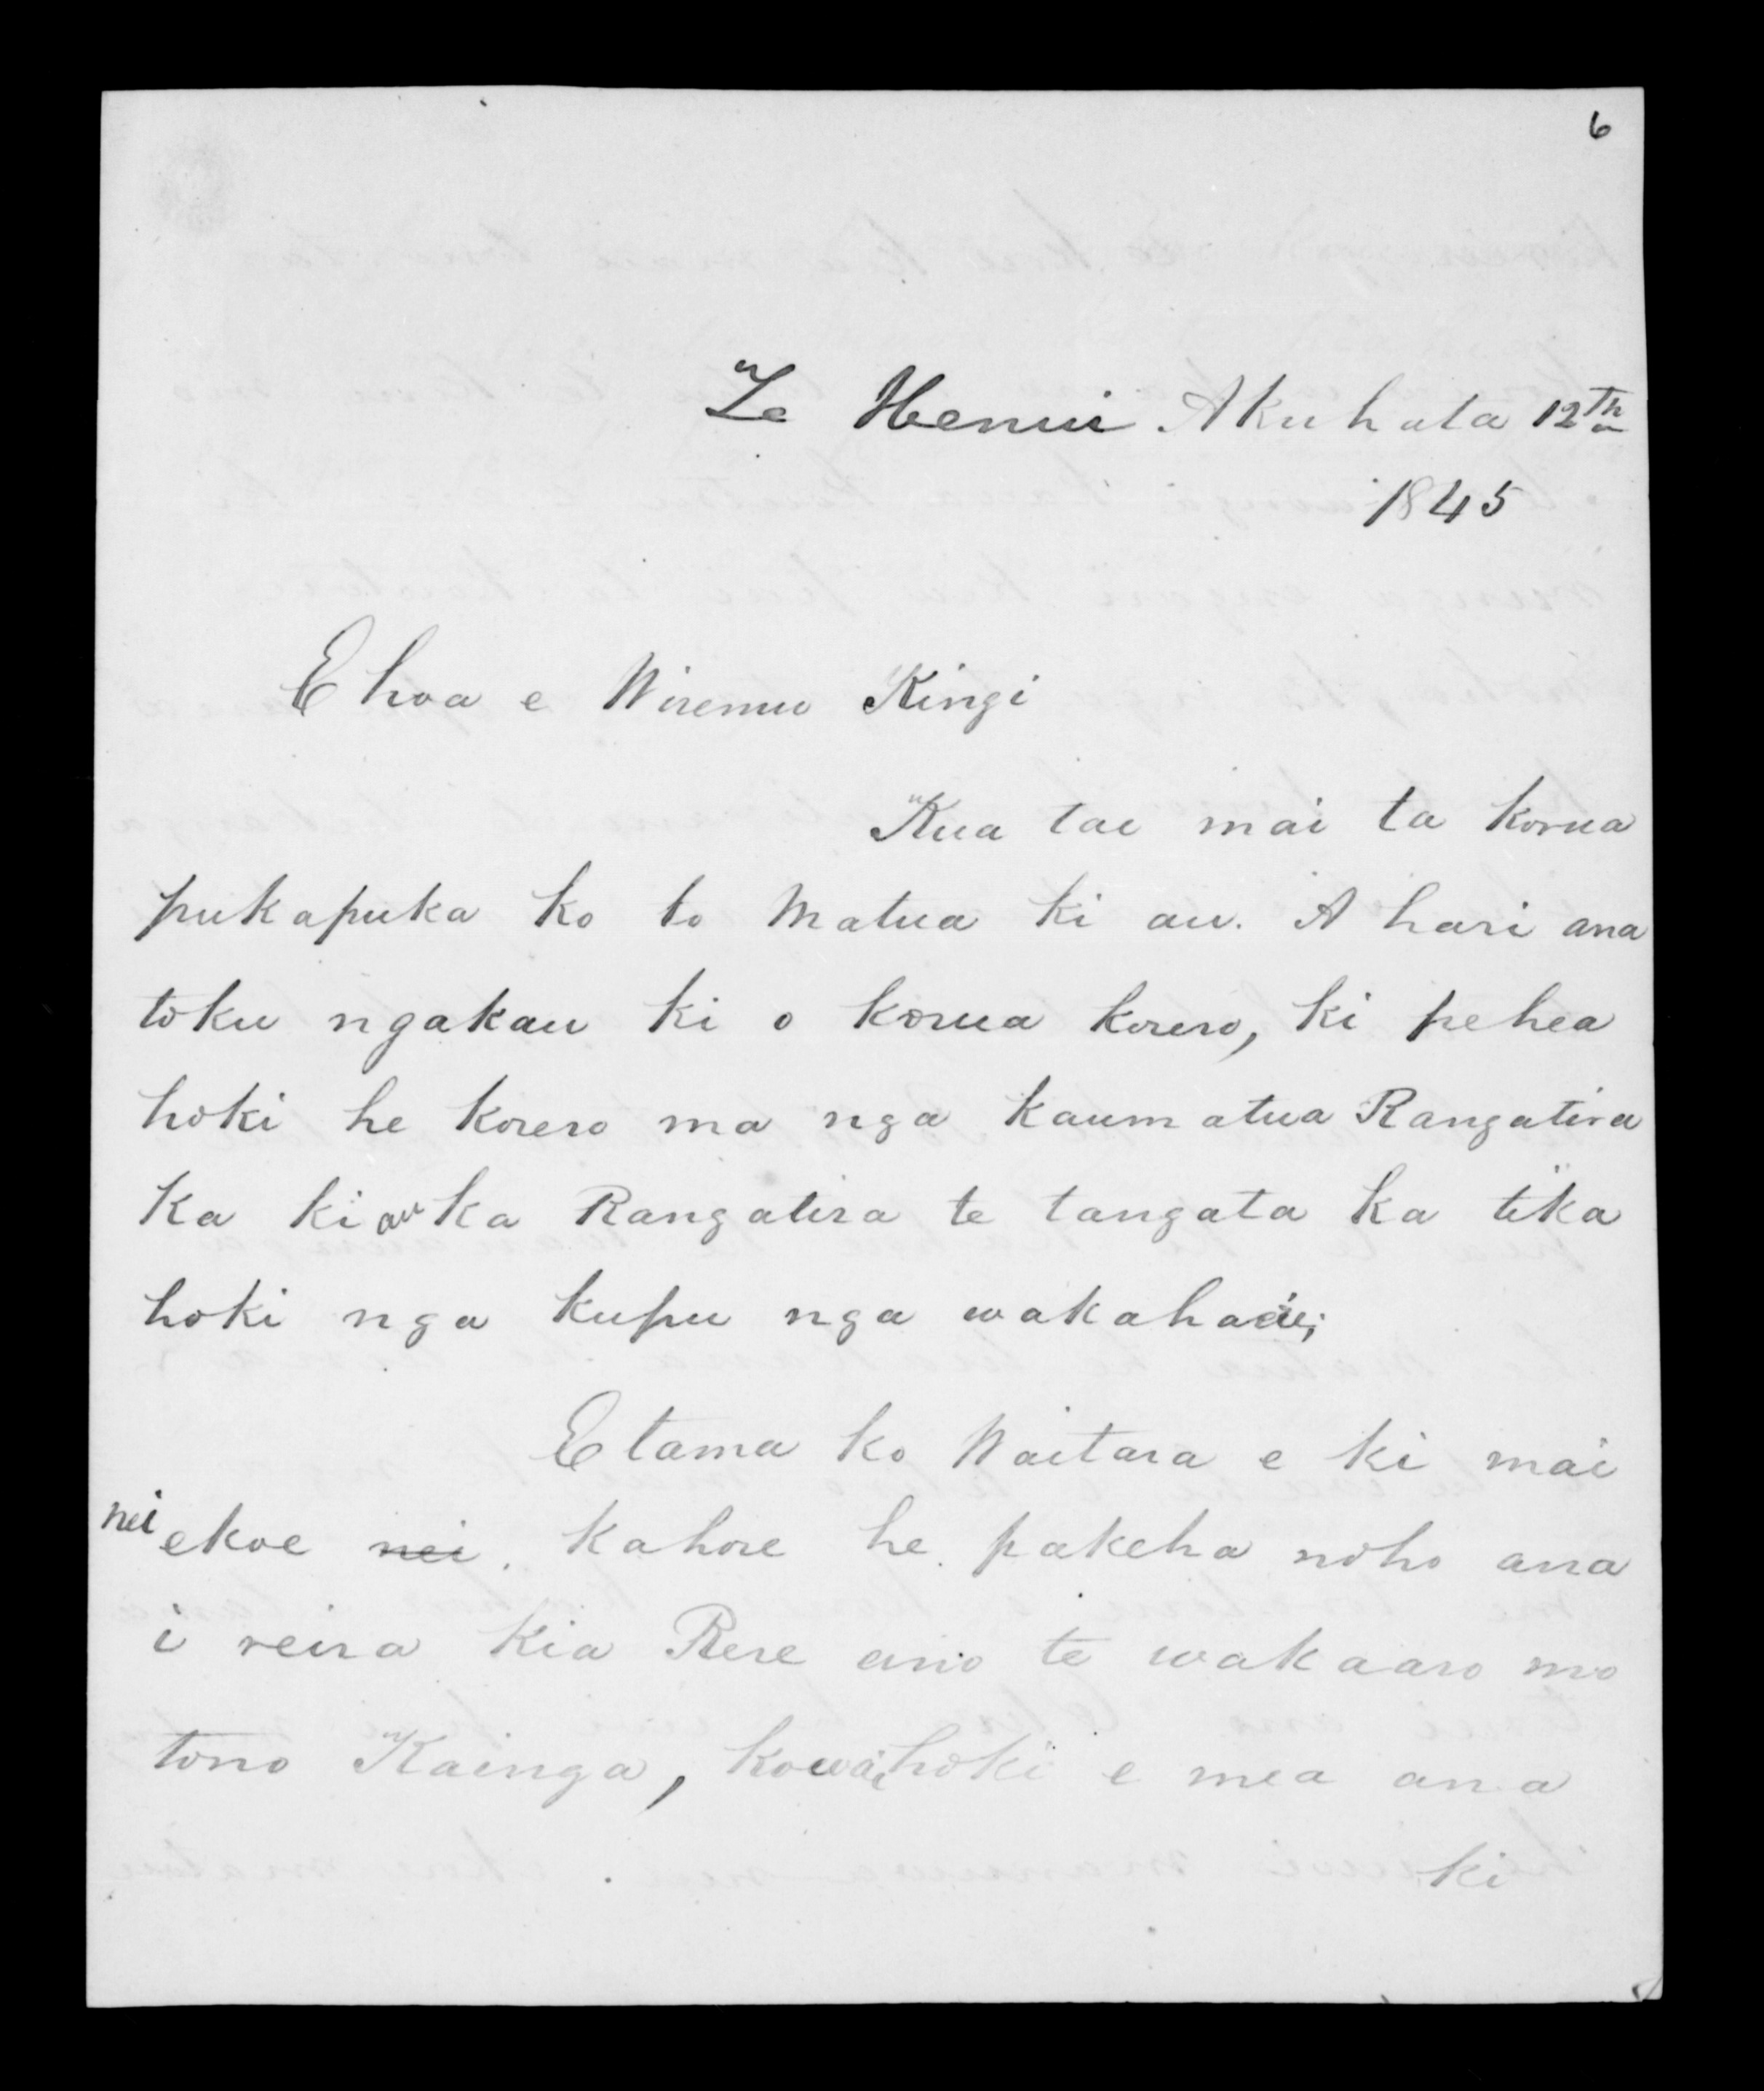 6
Te Henui Akuhata 12th
1845
E hoa e Wiremu Kingi
Kua tae mai ta korua
pukapuka ko to Matua ki au. A hari ana
toku ngakau ki o korua korero, ki pehea
hoki he korero ma nga kaumatua Rangatira
Ka ki au ka Rangatira te tangata ka tika
hoki nga kupu nga
E tama ko Waitara e ki mai
nei ekoe nei. Kahore he pakeha noho ana
i reira Kia Rere ano te wakaaro mo
tono Kainga, kowai hoki e mea ana
ki